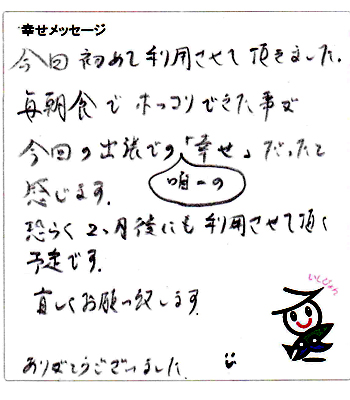 幸せメッセージ
今回初めて利用させて頂きました.
毎朝食でホッコリできた事が
今回の出張での「幸せ」だったと
唯一の
感じます.
恐らく2ヶ月後にも利用させて頂く
予定です.
宜しくお願い致します.
ありがとうございました